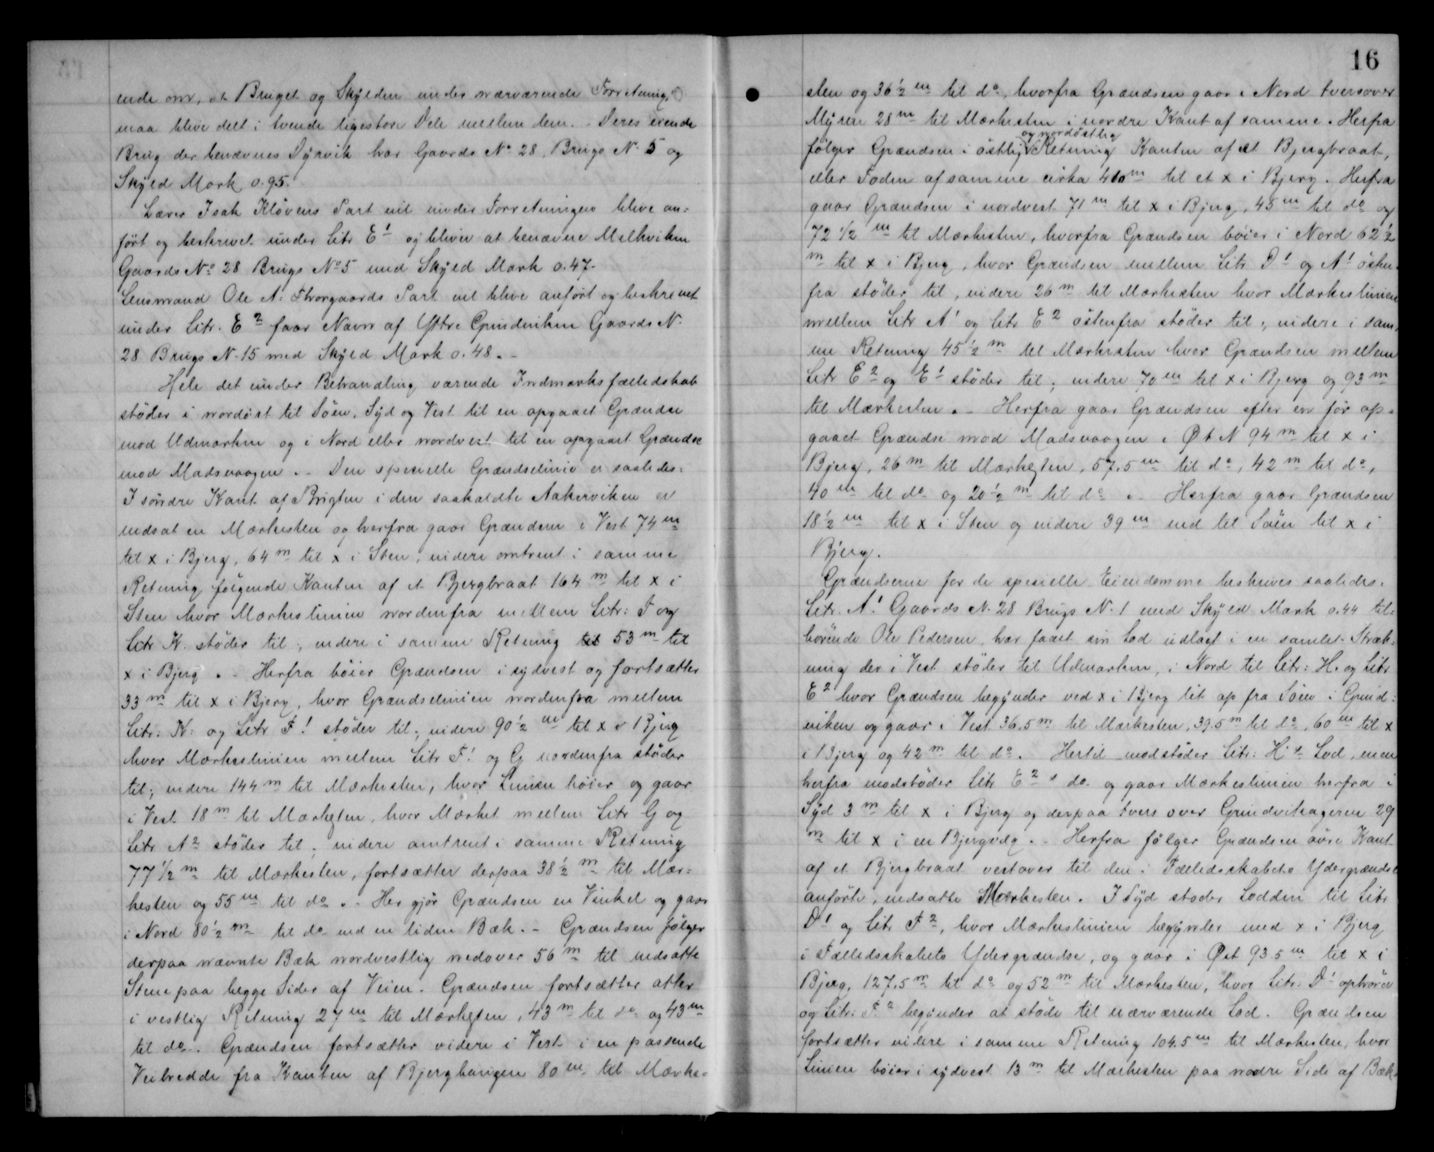 ende om, at Bruget og Skylden under nærværende Forretning,
maa blive delt i tvende ligestore Dele mellem dem. Deres eiende
Brug der benævnes Dyrvik har Gaards No 28. Brugs N. 5 og
Skyld Mark 0.95.
Lærer Isak Kløvens Part vil under Forretningen blive an-
ført og beskrevet under Litr E1 og bliver at benævne Melkviken
Gaards No 28 Brugs No 5 med Skyld Mark 0.47.
Lensmand Ole A. Thorgaards Part vil blive anført og beskrevet
under Litr. E2 faar Navn af Yttre Grundviken Gaards N.
28 Brugs N. 15 med Skyld Mark 0.48.-
Hele det under Behandling værende Indmarksfælledskab
støder i nordøst til Søen, Syd og Vest til en opgaaet Grændse
mod Udmarken og i Nord eller nordvest til en opgaaet Grændse
mod Madsvaagen.- Den specielle Grændselinie er saaledes:
I søndre Kant af Brigten i den saakaldte Aakerviken er
nedsat en Merkesten og herfra gaar Grændsen i Vest 74 m
til x i Bjerg, 64 m til x i Sten, videre omtrent i samme
Retning følgende Kanten af et Bjergbraat 164 m til x i
Sten hvor Merkeslinien nordenfra mellem Litr: F og
Litr K. støder til; videre i samme Retning 53 m til
x i Bjerg.- Herfra bøier Grændsen i sydvest og fortsætter
33 m til x i Bjerg, hvor Grændselinien nordenfra mellem
Litr: K: og Litr F! støder til; videre 90 1/2 m til x i Bjerg
hvor Merkeslinien mellem Litr F! og G nordenfra støder
til; videre 144 m til Mærkesten, hvor Linien bøier og gaar
i Vest 18 m til Mærkesten, hvor Mærket mellem Litr G og
Litr A2 støder til; videre omtrent i samme Retning
77 1/2 m til Mærkesten, fortsætter derpaa 38 1/2 m til Mær-
kesten og 55 m til do.- Her gjør Grændsen en Vinkel og gaar
i Nord 80 1/2 m til do ved en liden Bæk.- Grændsen følger
derpaa nævnte Bæk nordvestlig nedover 56 m til nedsatte
Stene paa begge Sider af Veien. Grændsen fortsætter atter
i vestlig Retning 27 m til Mærkesten, 43 m til do og 43 m
til do. Grændsen fortsætter videre i Vest i en passende
Veibredde fra Kanten af Bjergbangen 80 m, til Mærke-
16
sten og 36 1/2 m til do, hvorfra Grændsen gaar i Nord tversover
Myren 28 m til Mærkesten i nordre Kant af samme. Herfra
og nordøstlig
følger Grændsen i østlig Retning Kanten af et Bjergbraat,
eller Foden af samme cirka 410 m til et x i Bjerg. Herfra
gaar Grændsen i nordvest 71 m til x i Bjerg, 45 m til do og
72 1/2 m til Mærkesten, hvorfra Grændsen bøier i Nord 62 1/2
m til x i Bjerg, hvor Grændsen mellem Litr. D! og A! østen-
fra støder til, videre 26 m til Mærkesten hvor Mærkeslinien
mellem Litr A! og Litr E2 østenfra støder til; videre i sam-
me Retning 45 1/2 m til Mærkesten hvor Grændsen mellem
Litr E2 og E! støder til; videre 70 m til x i Bjerg og 93 m
til Mærkesten.- Herfra gaar Grændsen efter en før op-
gaaet Grændse mod Madsvaagen i Øst N 94 m til x i
Bjerg, 26 m til Mærkesten, 57.5 m til do, 42 m til do,
40 m til do og 20 1/2 m til do.- Herfra gaar Grændsen
18 1/2 m til x i Sten og videre 39 m ned til Søen til x i
Bjerg.
Grændserne for de specielle Eiendomme beskrives saaledes:
Litr. A! Gaards N. 28 Brugs N. 1 med Skyld Mark 0.44 til-
hørende Ole Pedersen, har faaet sin Lod udlagt i en samlet Stræk-
ning der i Vest støder til Udmarken, i Nord til Litr: H. og Litr
E2 hvor Grændsen begynder ved x i Bjerg lit op fra Søen i Grund-
viken og gaar i Vest 36.5 m til Mærkesten, 39.5 m til do, 60 m til x
i Bjerg og 42 m til do. Hertil modstøder Litr: H's Lod, men
herfra modstøder Litr E2 s do og gaar Mærkeslinien herfra i
Syd 3 m til x i Bjerg og derpaa tvers over Grundvikageren 29
m til x i en Bjergvæg.- Herfra følger Grændsen øvre Kant
af et Bjergbraat vestover til den i Fælledsskabets Ydergrændse
anførte, nedsatte Mærkesten. I Syd støder Lodden til Litr
D! og Litr F2, hvor Mærkeslinien begynder med x i Bjerg
i Fælledsskabets Ydergrændse, og gaar i Øst 93 5 m til x i
Bjerg, 127.5 m til do og 52 m til Mærkesten, hvor Litr: D! ophører
og Litr: F2 begynder at støde til nærværende Lod. Grændsen
fortsætter videre i samme Retning 104.5 m til Mærkesten, hvor
Linien bøier i sydvest 13 m til Mærkesten paa nordre Side af Bæk-